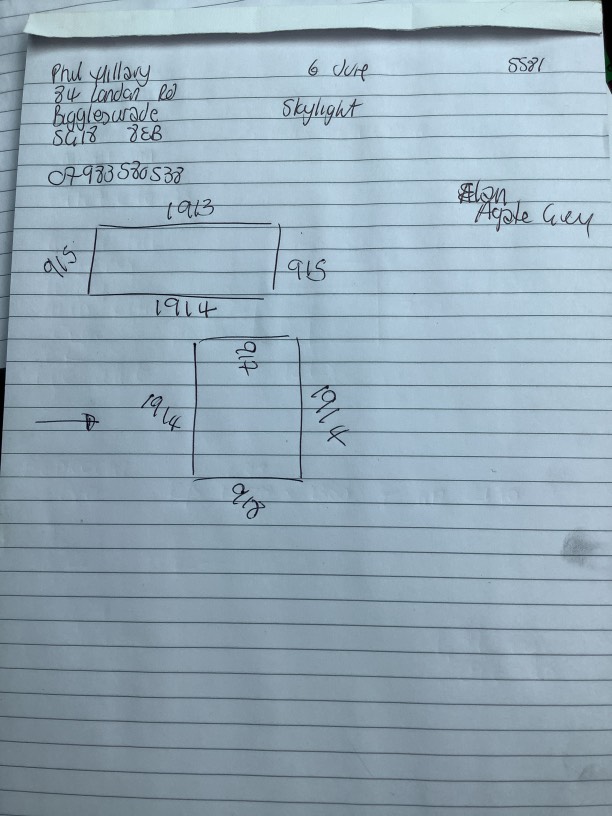 Phil Hillary 6 June 5581
84 London Rd
Biggleswade Skylight
SG18 8EB
07983580538
Elan
Agate Grey
1913
915 915
1914
917
1914 1914
918